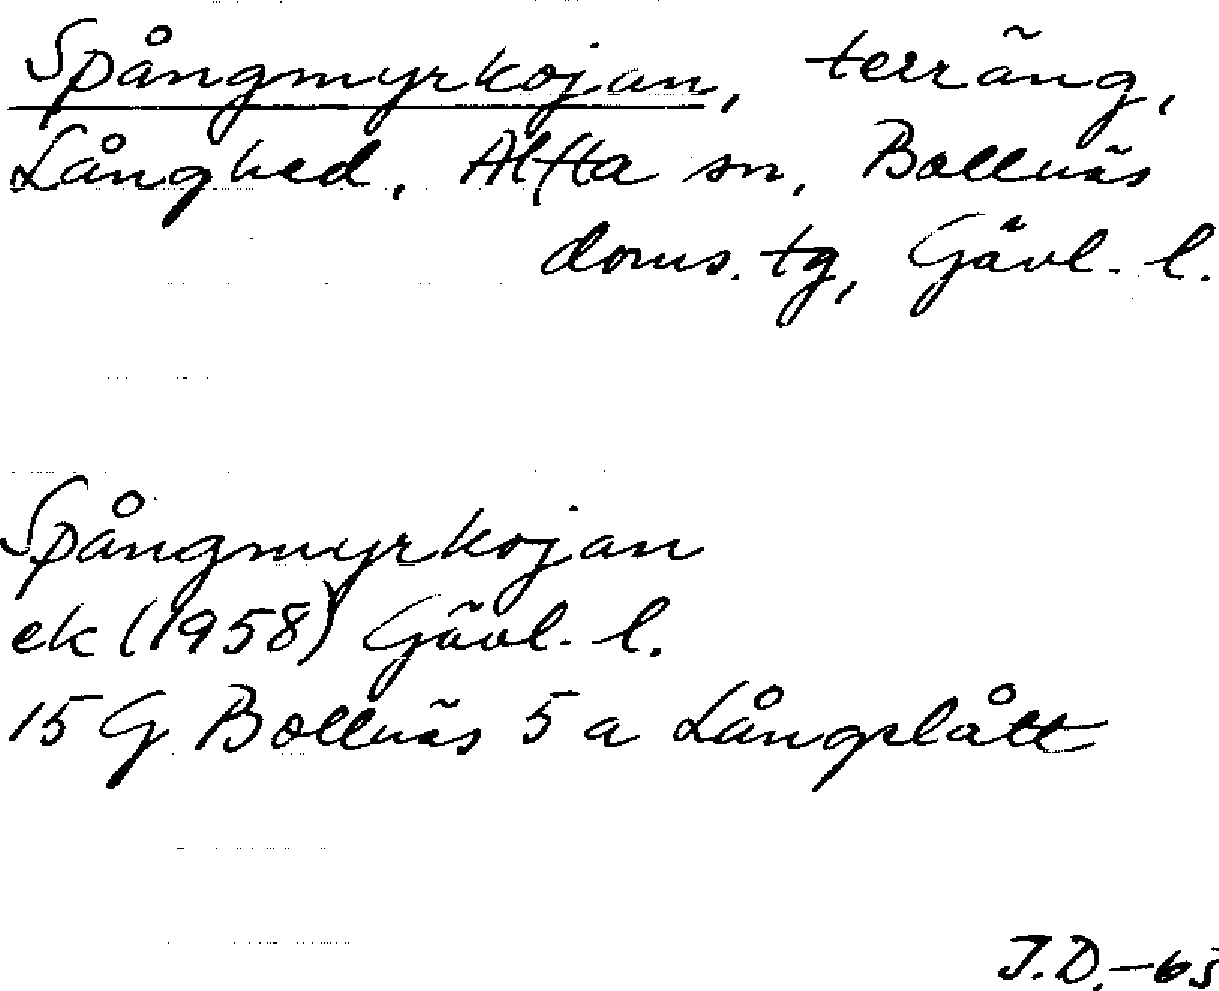 Spångmyrkojan, terräng,
Långhed, Alfta sn, Bollnäs
doms. tg, Gävl. l.
Spångmyrkojan
ek (1958) Gävl. l.
15 G Bollnäs 5 a Långslått
J.D. -65